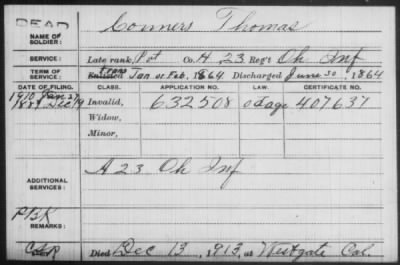 DEAD
Conners Thomas
NAME OF
SOLDIER:
SERVICE: Late rank, Pvt Co. H, 23 Reg't Oh Inf
TERM OF
SERVICE: Enlisted from Jan or Feb, 1864 Discharged June 30, 1864
DATE OF FILING. CLASS. APPLICATION NO. LAW. CERTIFICATE NO.
1910 Jan 27
1887 Dec 19 Invalid, 632508 od age 407637
Widow,
Minor,
ADDITIONAL
SERVICES: A 23 Oh Inf
REMARKS:
Died Dec 13, 1913, at Westgate Cal.